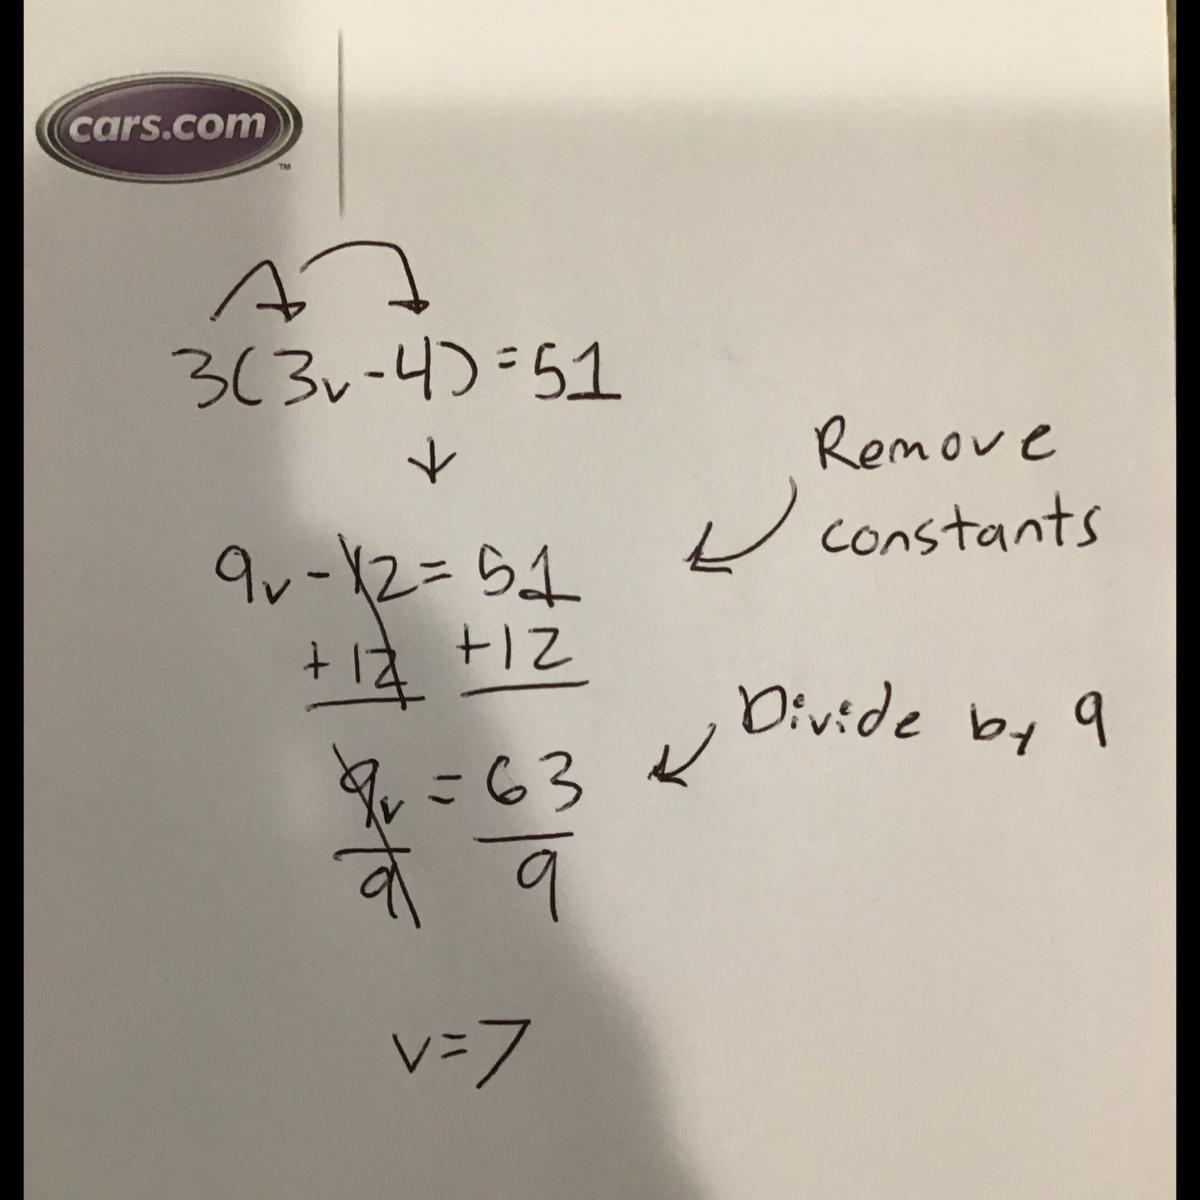 cars.com
TM
3(3v-4)=51
Remove
constants
9v-12=51
+12 +12
Divide by 9
9v = 63
9 9
v=7